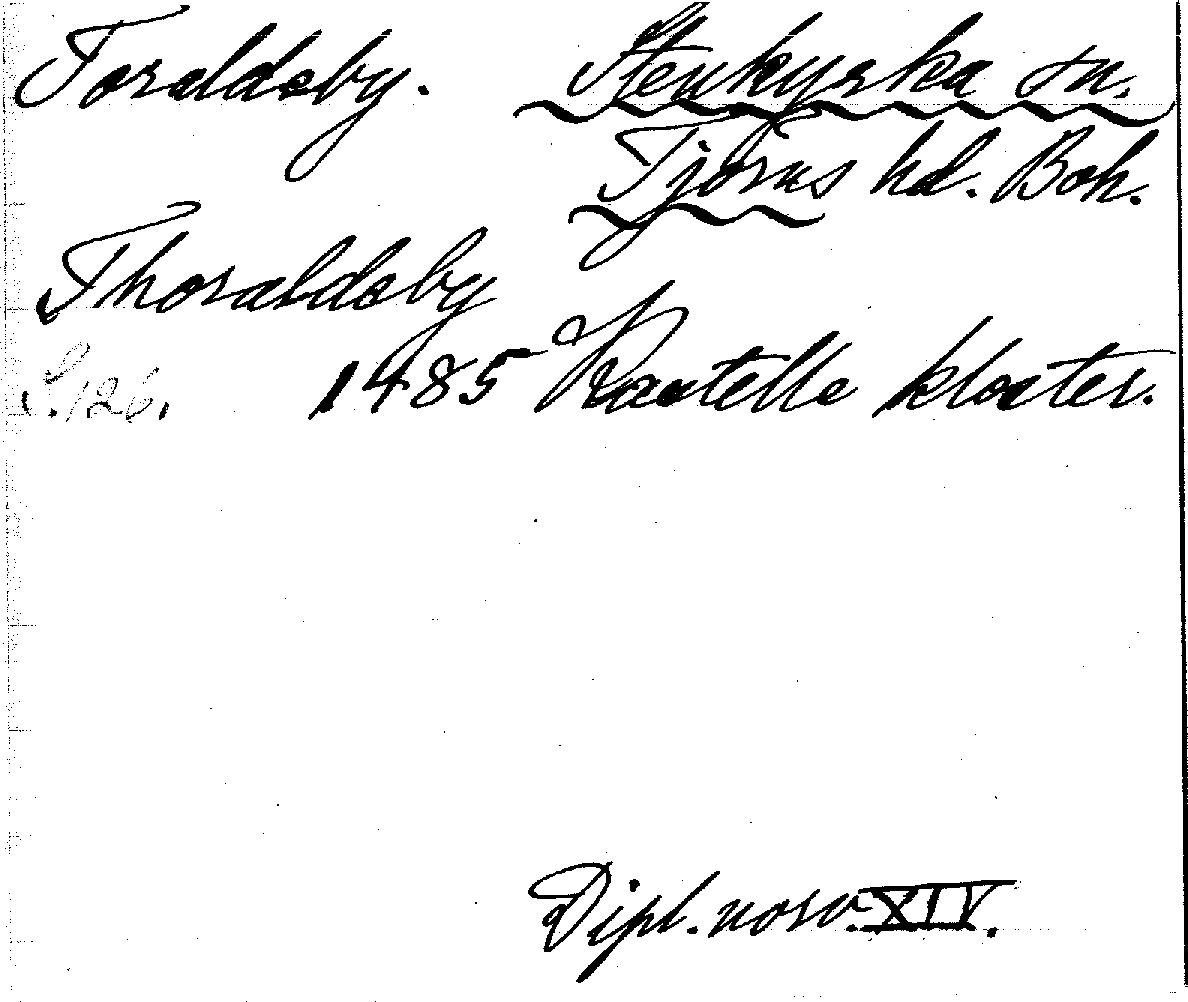 Toraldsby. Stenkyrka sn.
Tjörns hd. Boh.
Thoraldsby
S. 126. 1485 Kastelle kloster.
Dipl. norv. XIV.